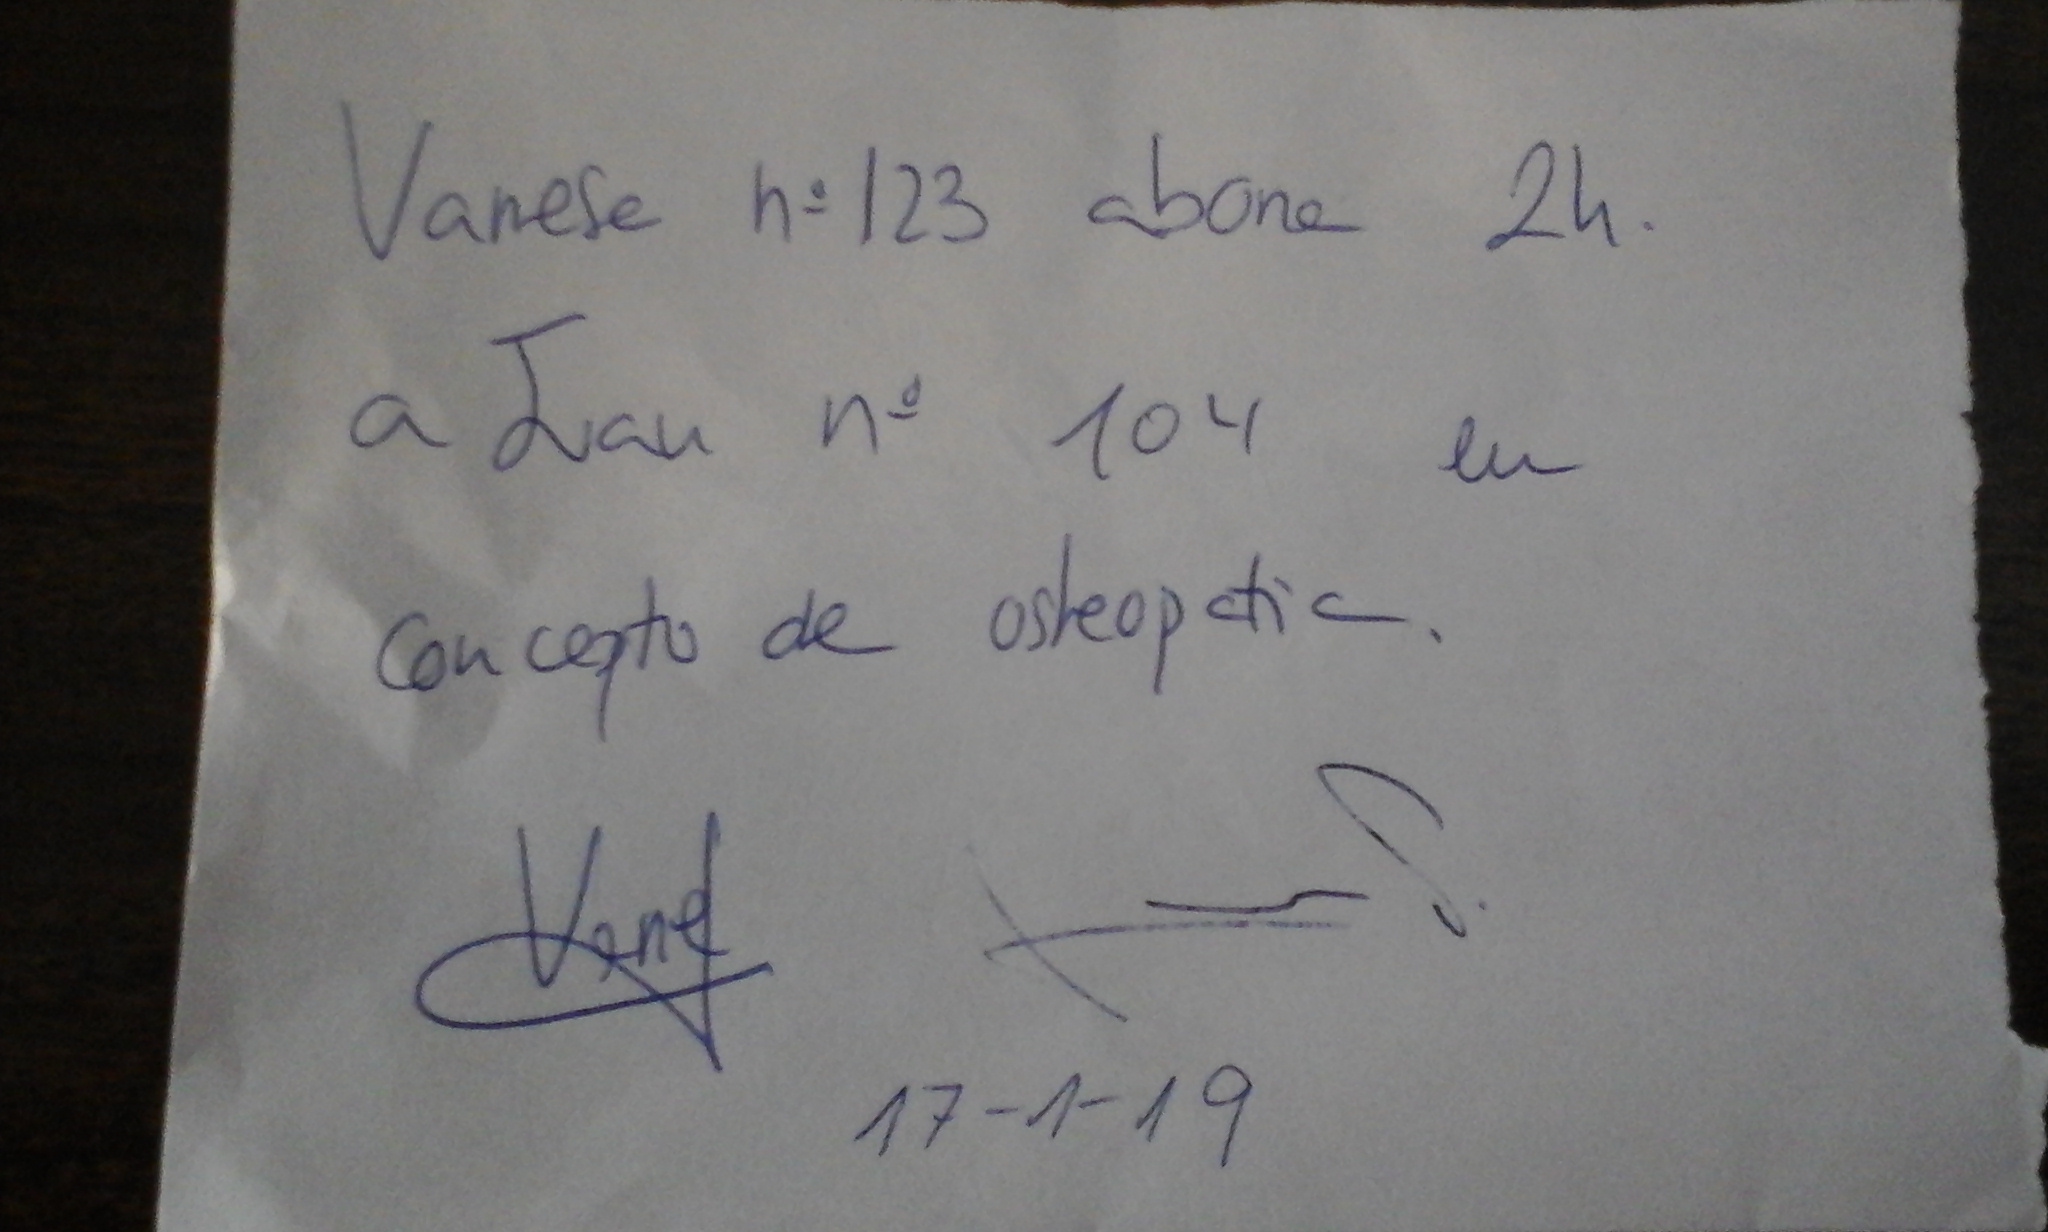 Vanesa nº 123 abona 2h.
a Ivan nº 104 en
concepto de osteopatia.
Vane
17-1-19